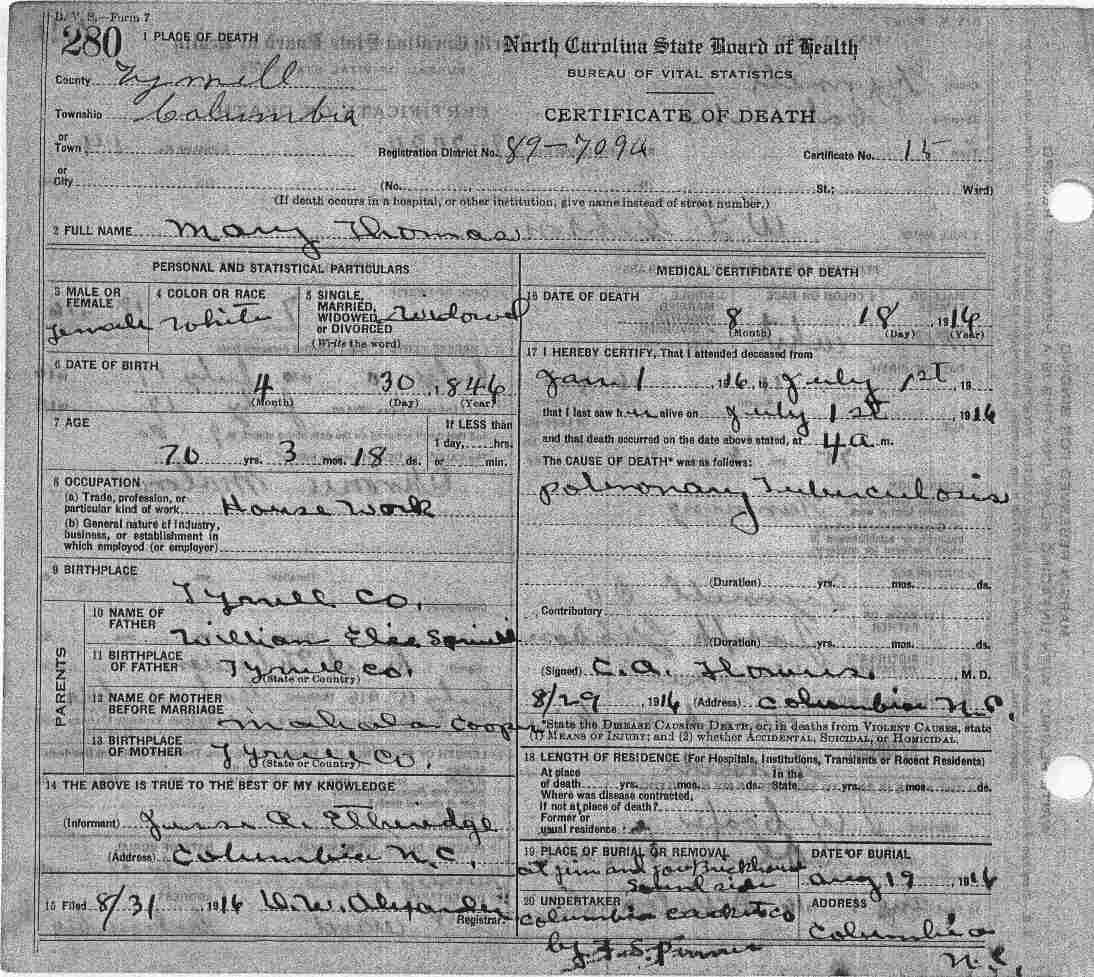 D. V. S.—Form 7
280
1 PLACE OF DEATH
North Carolina State Board of Health
BUREAU OF VITAL STATISTICS
County Tyrrell
CERTIFICATE OF DEATH
Township Columbia
or
Town
Registration District No. 89-709a
Certificate No. 15
or
City (No. , St.; Ward)
(If death occurs in a hospital, or other institution, give name instead of street number.)
2 FULL NAME Mary Thomas
PERSONAL AND STATISTICAL PARTICULARS
3 MALE OR FEMALE Female
4 COLOR OR RACE White
5 SINGLE, MARRIED, WIDOWED, or DIVORCED (Write the word) Widowed
6 DATE OF BIRTH
4 30 , 1846
(Month) (Day) (Year)
7 AGE
70 yrs. 3 mos. 18 ds.
If LESS than
1 day, hrs.
or min.
8 OCCUPATION
(a) Trade, profession, or
particular kind of work House Work
(b) General nature of industry,
business, or establishment in
which employed (or employer)
9 BIRTHPLACE
Tyrrell Co.
PARENTS
10 NAME OF FATHER
William Spruill
11 BIRTHPLACE OF FATHER Tyrrell Co.
(State or Country)
12 NAME OF MOTHER BEFORE MARRIAGE
Mahala Cooper
13 BIRTHPLACE OF MOTHER Tyrrell Co.
(State or Country)
14 THE ABOVE IS TRUE TO THE BEST OF MY KNOWLEDGE
(Informant) Jesse A. Etheredge
(Address) Columbia N.C.
15 Filed 8/31 1916 W. Alexander
Registrar.
MEDICAL CERTIFICATE OF DEATH
16 DATE OF DEATH
8 18 , 1916
(Month) (Day) (Year)
17 I HEREBY CERTIFY, That I attended deceased from
Jan 1 1916, to July 1st, 19
that I last saw her alive on July 1st 1916
and that death occurred on the date above stated, at 4 a m.
The CAUSE OF DEATH* was as follows:
Polmonary Tuberculosis
(Duration) yrs. mos. ds.
Contributory
(Duration) yrs. mos. ds.
(Signed) C.A. Flowers M. D.
8/29 1916 (Address) Columbia N.C.
*State the DISEASE CAUSING DEATH, or, in deaths from VIOLENT CAUSES, state
(1) MEANS OF INJURY; and (2) whether ACCIDENTAL, SUICIDAL, or HOMICIDAL.
18 LENGTH OF RESIDENCE (For Hospitals, Institutions, Transients or Recent Residents)
At place of death yrs. mos. ds. In the State yrs. mos. ds.
Where was disease contracted,
If not at place of death?
Former or
usual residence
19 PLACE OF BURIAL OR REMOVAL
at Jim and Brickhouse
Sound side
DATE OF BURIAL
Aug 19 1916
20 UNDERTAKER
Columbia Casket Co
by
ADDRESS
Columbia
N.C.